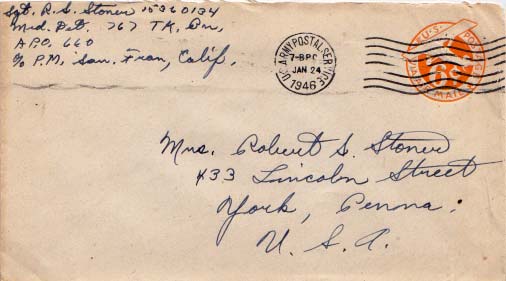 Sgt. R. S. Stoner 15360134
Med. Det. 767 TK. Bn.
A.P.O. 660
c/o P.M. San. Fran, Calif.
U.S. ARMY POSTAL SERVICE
7-BPO
JAN 24
1946
U.S. POSTAGE
6¢
VIA AIR MAIL
Mrs. Robert S. Stoner
433 Lincoln Street
York, Penna.
U.S.A.